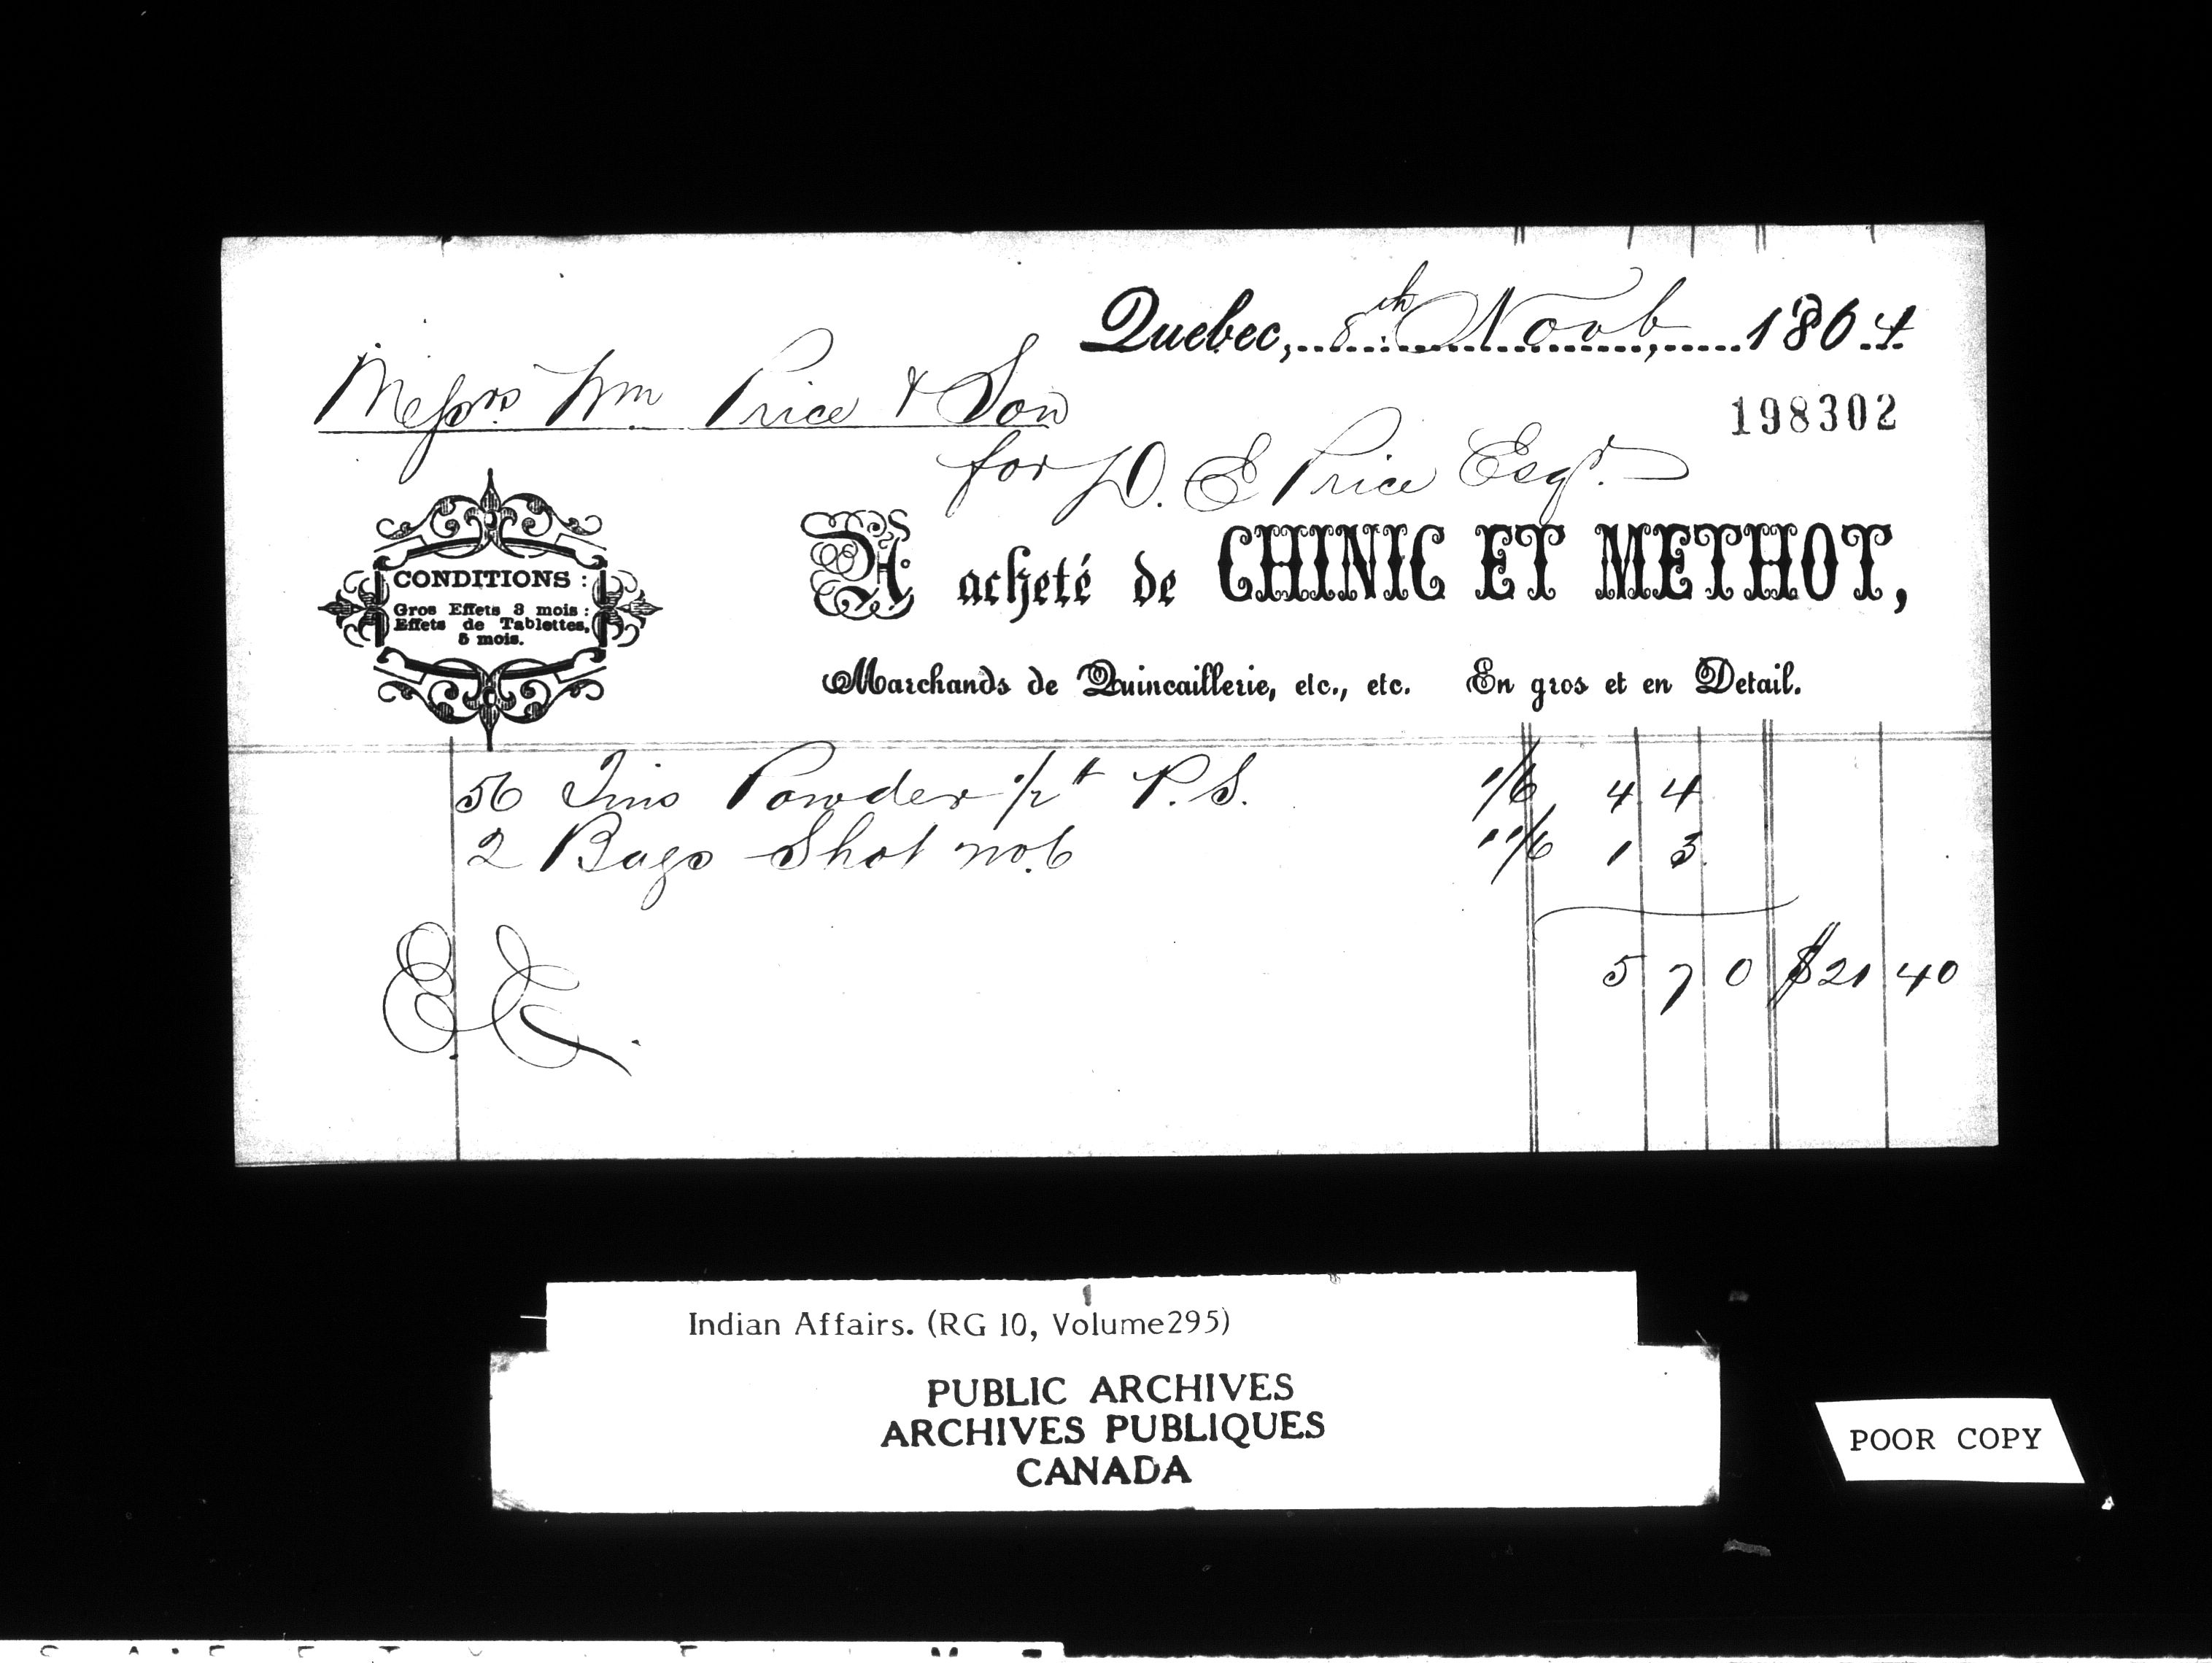 Quebec, 8th Novb, 1864
Messrs Wm Price & Son
198302
for D. E Price Esqr.
CONDITIONS :
Gros Effets 3 mois :
Effets de Tablettes,
5 mois.
A acheté de CHINIC ET METHOT,
Marchands de Quincaillerie, etc., etc. En gros et en Detail.
56 Tins Powder 1/2 lt P.S. 1/6 4 4
2 Bags Shot no. 6 11/6 1 3
5 7 0 $21 40
Indian Affairs. (RG 10, Volume295)
PUBLIC ARCHIVES
ARCHIVES PUBLIQUES
CANADA
POOR COPY